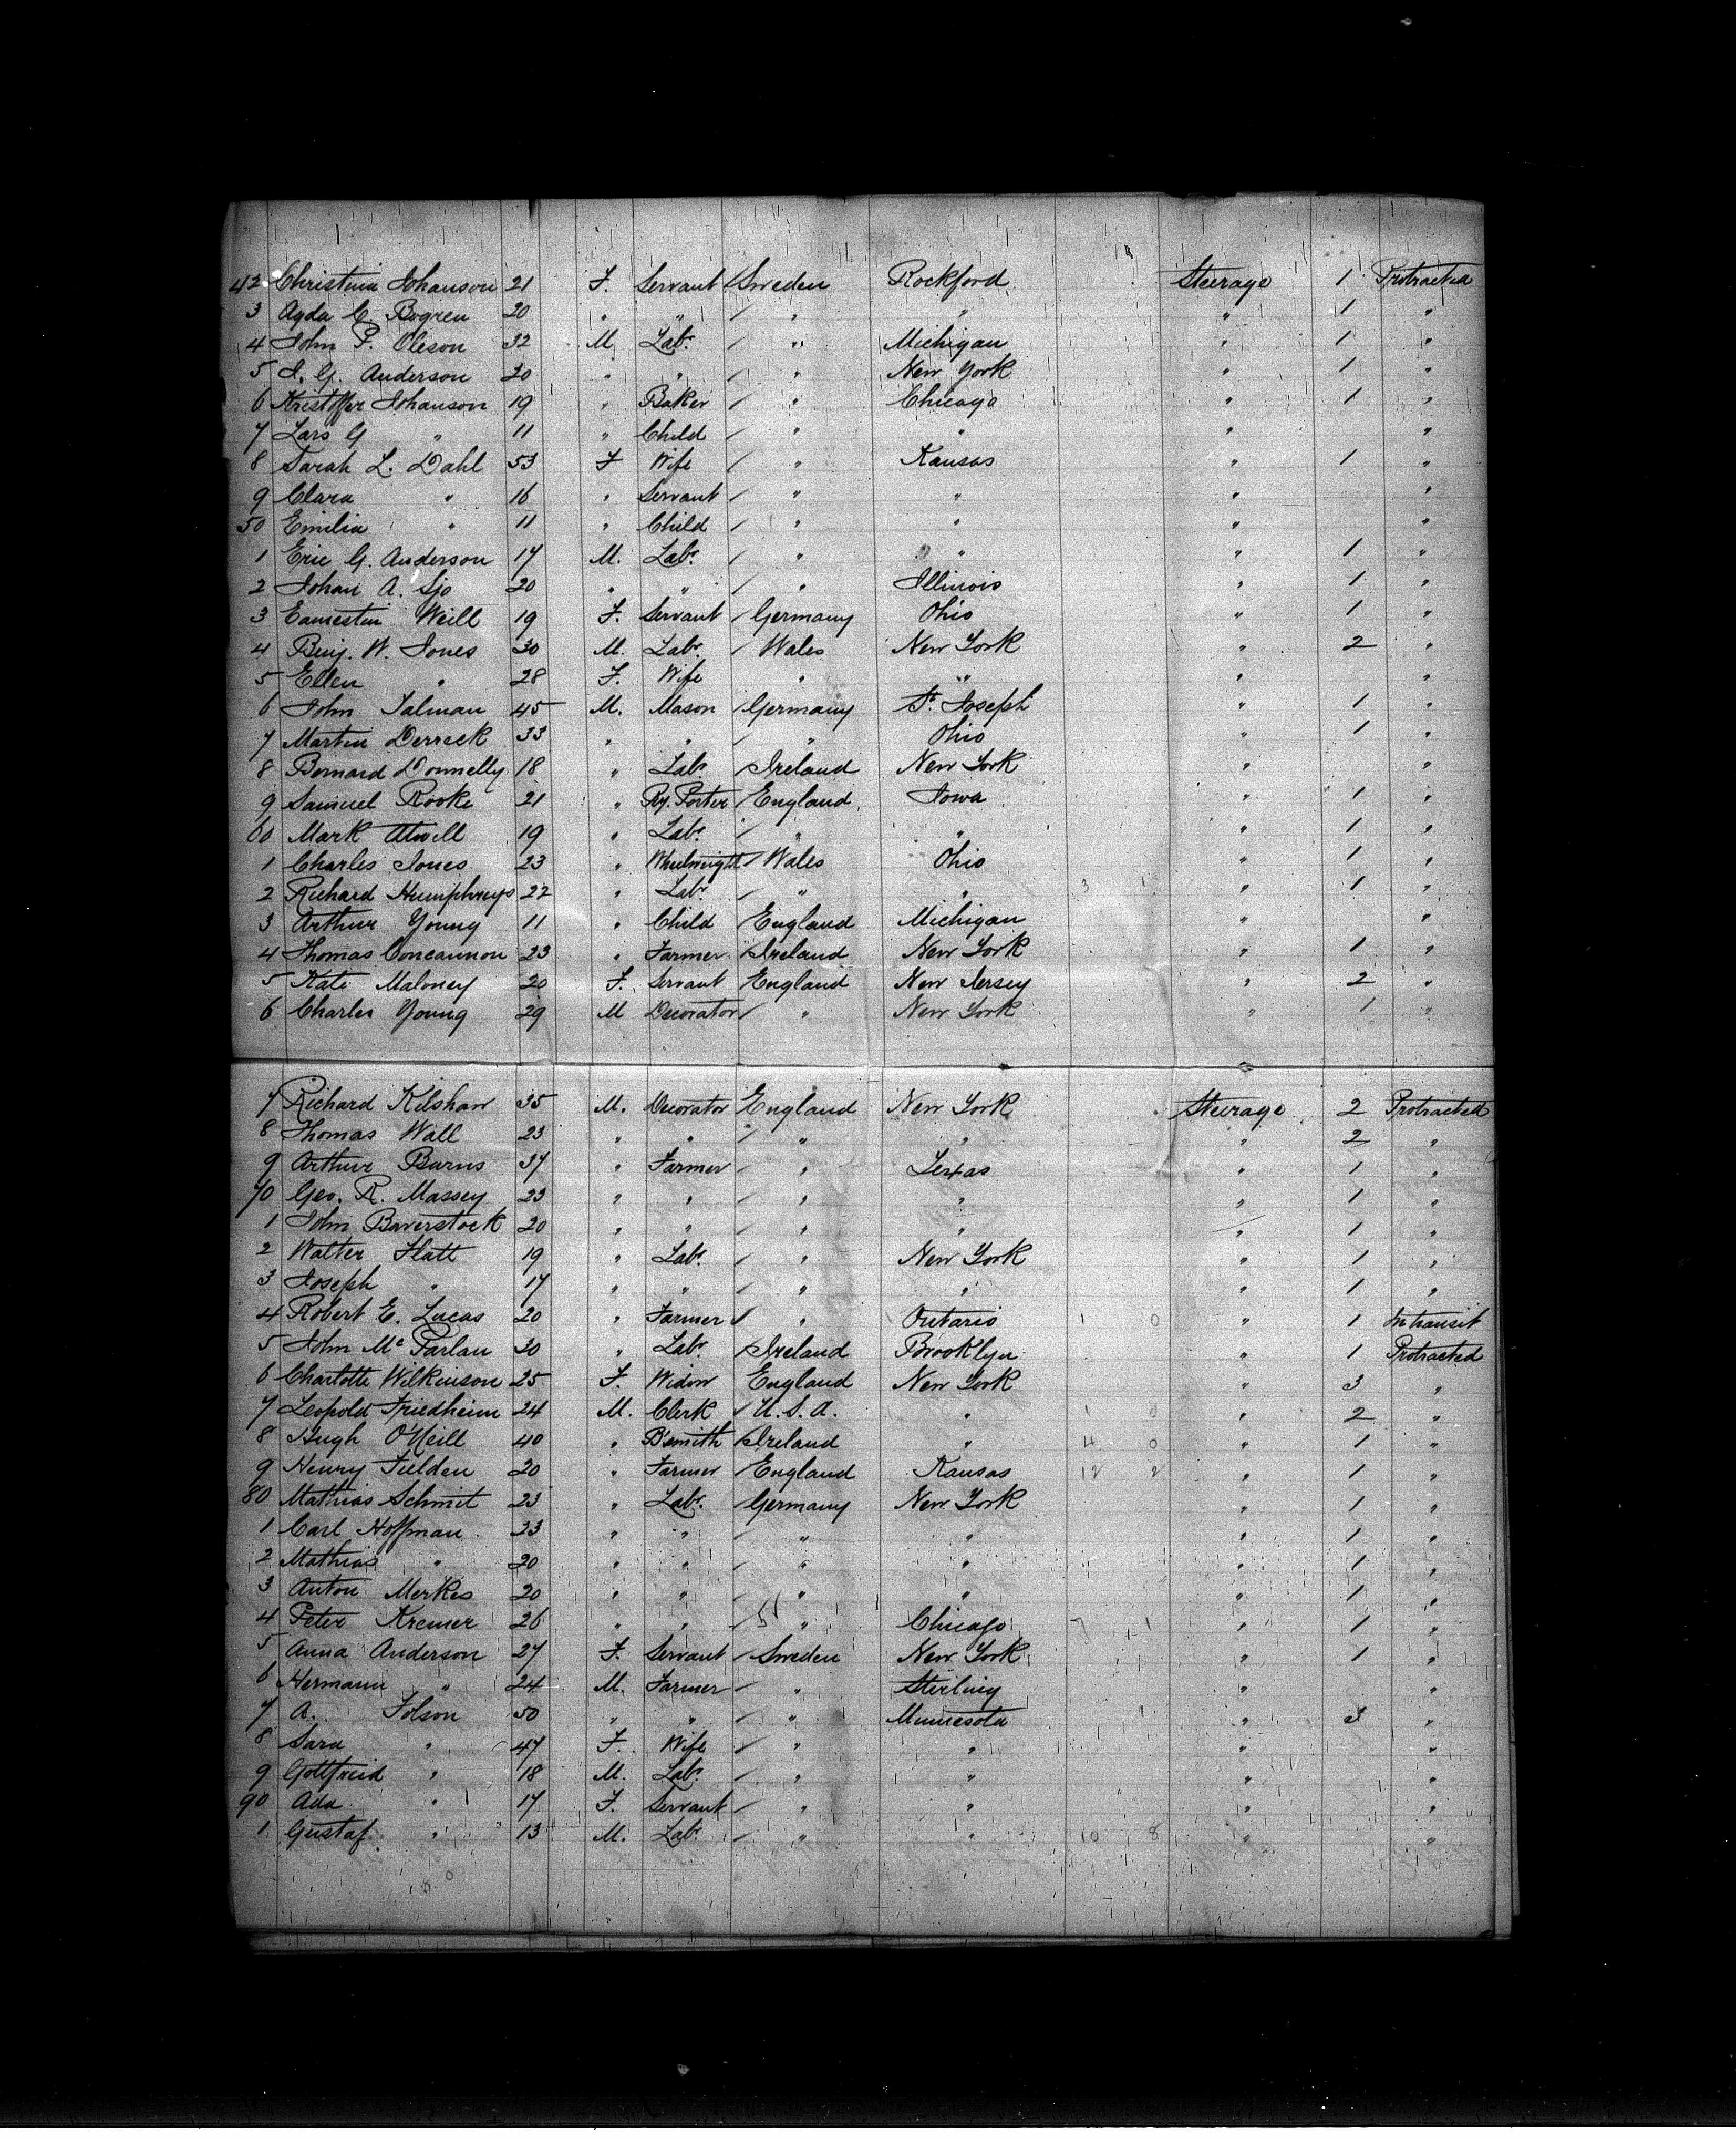 42 Christina Johanson 21 F. Servant Sweden Rockford Steerage 1 Protracted
3 Agda C. Bogren 20 " " / " " " 1 "
4 John P. Oleson 32 M Labr. / " Michigan " 1 "
5 J. G. Anderson 20 " " / " New York " 1 "
6 Kristoffer Johanson 19 " Baker / " Chicago " 1 "
7 Lars G " 11 " Child / " " " "
8 Sarah L. Dahl 53 F Wife / " Kansas " 1 "
9 Clara " 16 " Servant / " " " "
50 Emilia " 11 " Child / " " " "
1 Eric G. Anderson 17 M. Labr. / " " " 1 "
2 Johan A. Sjo 20 " " / " Illinois " 1 "
3 Earnestin Weill 19 F. Servant / Germany Ohio " 1 "
4 Benj. W. Jones 30 M. Labr. / Wales New York " 2 "
5 Ellen " 28 F. Wife " " " "
6 John Talman 45 M. Mason / Germany St. Joseph " 1 "
7 Martin Derreck 33 " " / " Ohio " 1 "
8 Bernard Donnelly 18 " Labr. / Ireland New York " "
9 Samuel Rooke 21 " Ry. Porter / England Iowa " 1 "
60 Mark Atwell 19 " Labr. / " " " 1 "
1 Charles Jones 23 " Wheelwright / Wales Ohio " 1 "
2 Richard Humphreys 22 " Labr. / " " 3 1 " 1 "
3 Arthur Young 11 " Child England Michigan " "
4 Thomas Concannon 23 " Farmer / Ireland New York " 1 "
5 Kate Maloney 20 F. Servant England New Jersey " 2 "
6 Charles Young 29 M Decorator / " New York " 1 "
7 Richard Kilshaw 35 M. Decorator England New York Steerage 2 Protracted
8 Thomas Wall 23 " " " " " 2 "
9 Arthur Burns 37 " Farmer / " Texas " 1 "
70 Geo. R. Massey 23 " " / " " " 1 "
1 John Baverstock 20 " " / " " " 1 "
2 Walter Flatt 19 " Labr. / " New York " 1 "
3 Joseph " 17 " " / " " " 1 "
4 Robert E. Lucas 20 " Farmer / " Ontario 1 0 " 1 In transit
5 John Mc Parlan 30 " Labr. / Ireland Brooklyn " 1 Protracted
6 Charlotte Wilkinson 25 F. Widow England New York " 3 "
7 Leopold Friedheim 24 M. Clerk / U.S.A. " 1 0 " 2 "
8 Hugh O'Neill 40 " B'smith / Ireland " 4 0 " 1 "
9 Henry Fielden 20 " Farmer / England Kansas 12 2 " 1 "
80 Mathias Schmit 23 " Labr. Germany New York " 1 "
1 Carl Hoffman 23 " " / " " " 1 "
2 Mathias " 20 " " / " " " 1 "
3 Anton Merkes 20 " " / " " " 1 "
4 Peter Kremer 26 " " / " Chicago 7 1 " 1 "
5 Anna Anderson 27 F. Servant / Sweden New York " 1 "
6 Hermann " 24 M. Farmer / " Sterling " "
7 A. Tolson 50 " " / " Minnesota " 3 "
8 Sara " 47 F. Wife / " " " "
9 Gottfreid " 18 M. Labr. / " " " "
90 Ada " 17 F. Servant / " " " "
1 Gustaf " 13 M. Labr. / " " 10 8 " "